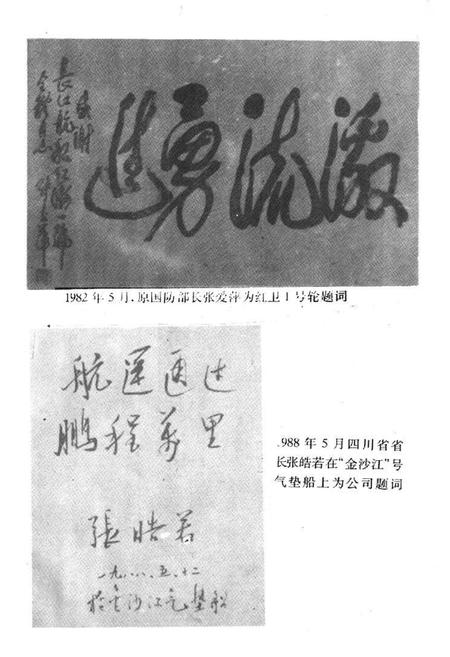 激流勇进
感谢
长江航船红卫一号
全体同志
1982年5月,原国防部长张爱萍为红卫1号轮题词
航运通达
鹏程萬里
張皓若
一九八八、五、十二
於金沙江气垫船
1988年5月四川省省
长张皓若在“金沙江”号
气垫船上为公司题词